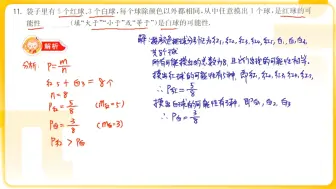 11. 袋子里有5个红球,3个白球,每个球除颜色以外都相同,从中任意摸出1个球,是红球的可
能性 (填“大于”“小于”或“等于”)是白球的可能性.
解析
分析: P=m/n
红5 + 白3 = 8个
n=8
P红=5/8 (m红=5)
P白=3/8 (m白=3)
P红 > P白
解:
红1, 红2, 红3, 红4, 红5, 白1, 白2, 白3
共8个球
所有可能摸出的总数为8, 且
摸出红球的可能性有5种, 即红1, 红2, 红3, 红4, 红5
∴ P红=5/8
摸出白球的可能性有3种, 即白1, 白2, 白3
∴ P白=3/8